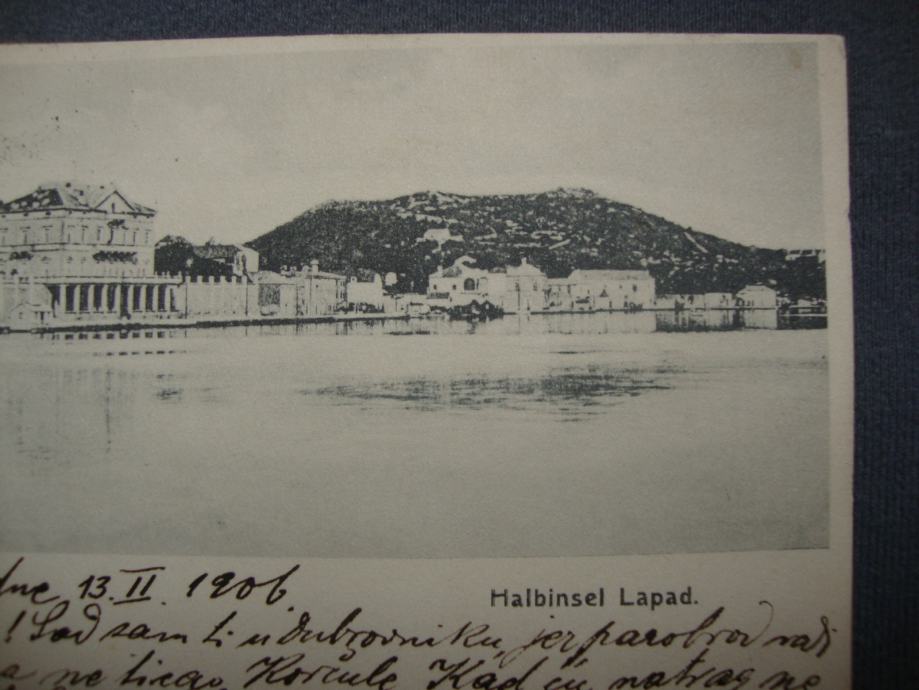 dne 13. II. 1906.
Halbinsel Lapad.
! Sad sam ti u Dubrovniku jer parobrod radi
ne Korčule Kad ću natrag ne